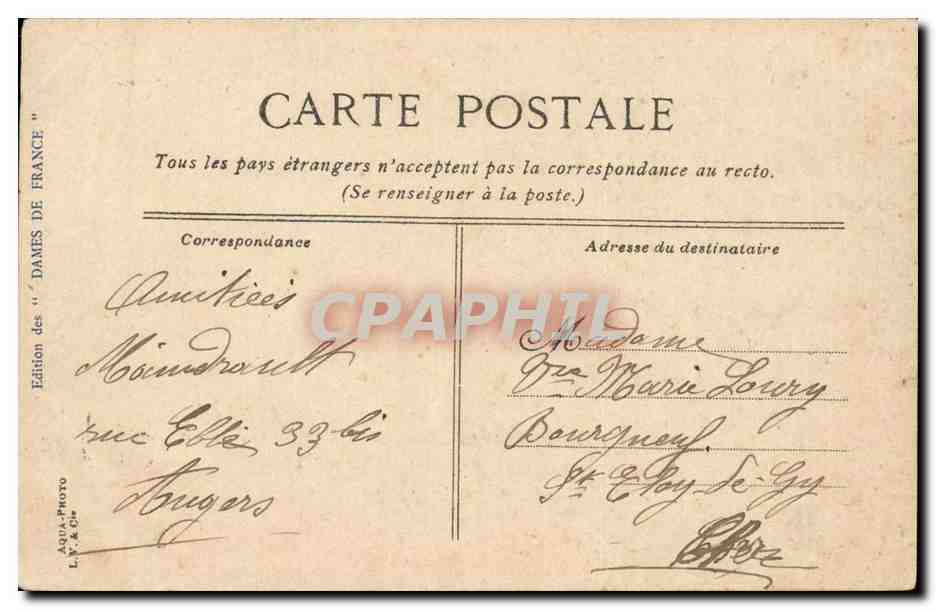 CARTE POSTALE
Tous les pays étrangers n'acceptent pas la correspondance au recto.
(Se renseigner à la poste.)
Correspondance
Amitiées
Maindrault
rue Eblé 33 bis
Angers
Adresse du destinataire
Madame
Vve Marie Loury
Bourgneuf
St Eloy-de-Gy
Cher
Edition des "DAMES DE FRANCE"
AQUA-PHOTO
L. V. & Cie
CPAPHIL